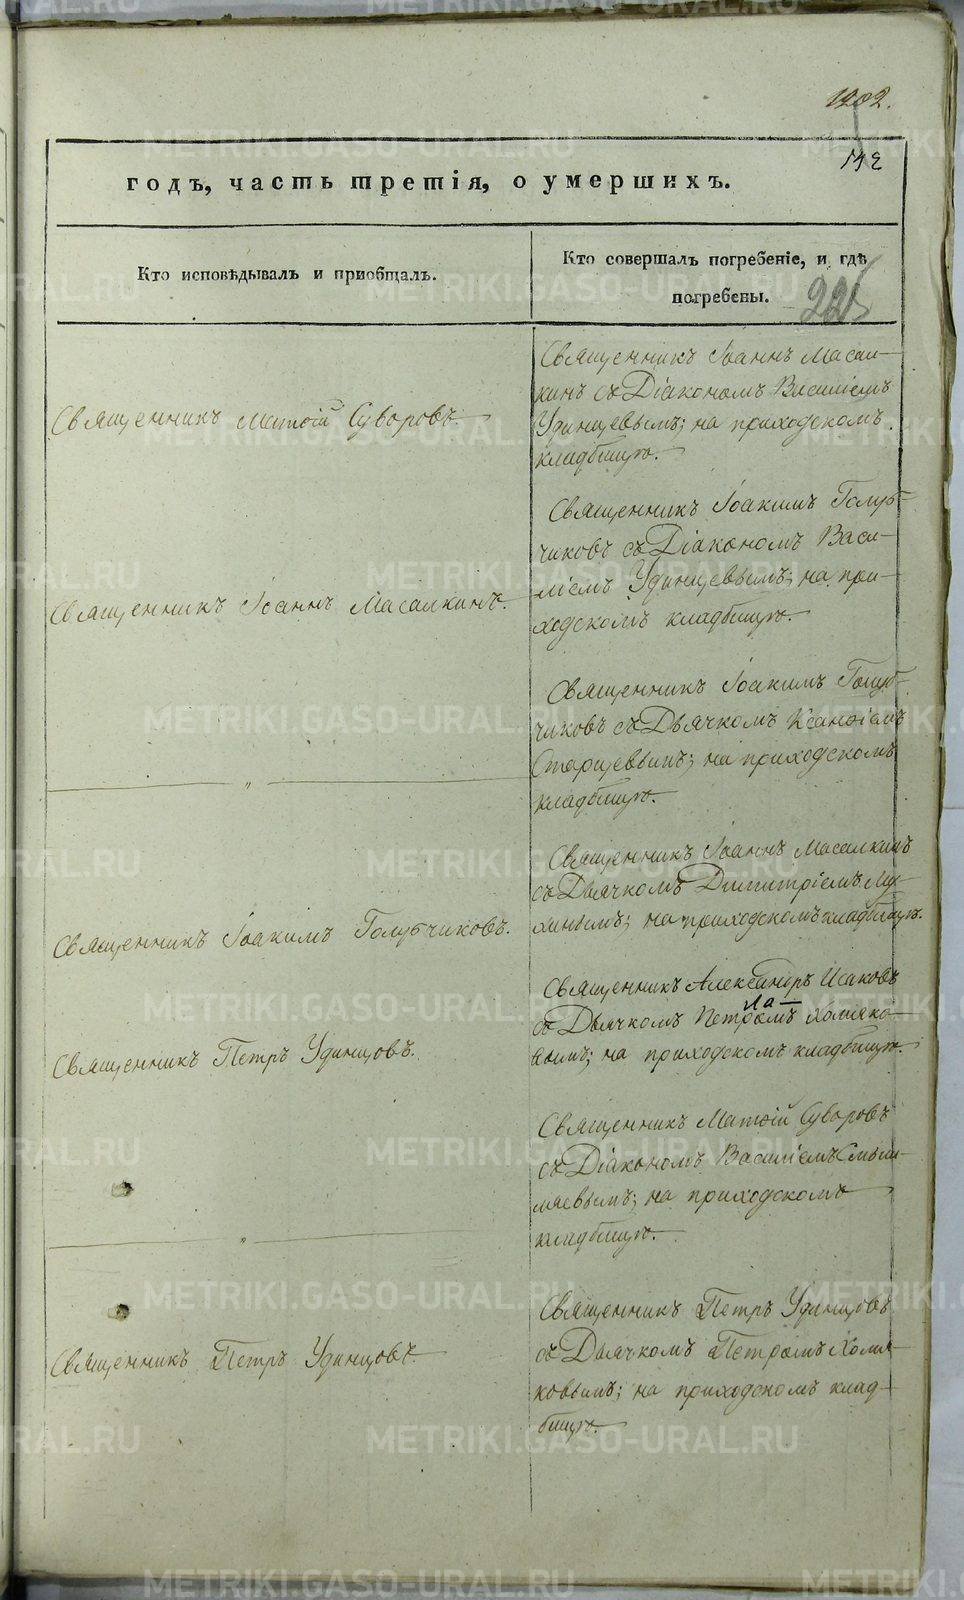 1202.
годъ, часть третія, о умершихъ.
Кто исповѣдывалъ и приобщалъ.
Кто совершалъ погребеніе, и гдѣ
погребены.
Священникъ Матѳій Суворовъ.
Священникъ Іоаннъ Масал-
кинъ съ Діакономъ Василіемъ
Удинцевымъ; на приходскомъ
кладбищѣ.
Священникъ Іоаннъ Масалкинъ.
Священникъ Іоакимъ Голуб-
чиковъ съ Діакономъ Васи-
ліемъ Удинцевымъ; на при-
ходскомъ кладбищѣ.
"
Священникъ Іоакимъ Голуб-
чиковъ съ Дьячкомъ Ксанѳіемъ
Старцевымъ; на приходскомъ
кладбищѣ.
Священникъ Іоакимъ Голубчиковъ.
Священникъ Іоаннъ Масалкинъ
съ Дьячкомъ Димитріемъ Лу-
хинымъ; на приходскомъ кладбищѣ.
Священникъ Петръ Удинцовъ.
Священникъ Александръ Исаковъ
съ Дьячкомъ Петромъ Хомяко-
вымъ; на приходскомъ кладбищѣ.
"
Священникъ Матѳій Суворовъ
съ Діакономъ Василіемъ Смыш-
ляевымъ; на приходскомъ
кладбищѣ.
Священникъ Петръ Удинцовъ.
Священникъ Петръ Удинцовъ
съ Дьячкомъ Петромъ Хомя-
ковымъ; на приходскомъ клад-
бищѣ.
METRIKI.GASO-URAL.RU